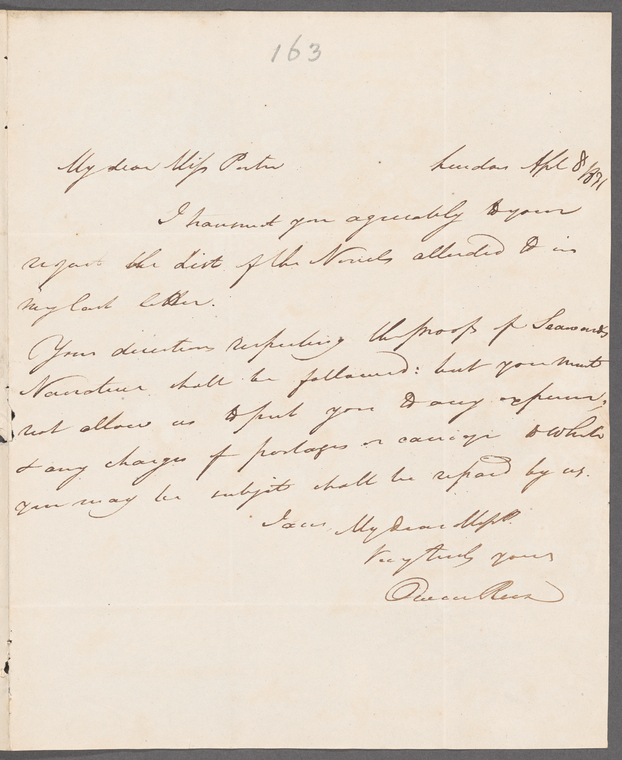 163
My dear Miss Porter London Apl 8 1831
I transmit you agreeably to your
request the List of the Novels alluded to in
my last letter.
Your directions respecting the proofs of Seaward's
Narrative shall be followed: but you must
not allow us to put you to any expense,
& any charges of postages or carriage to which
you may be subject shall be repaid by us.
I am My dear Miss P.
Very truly yours
Owen Rees